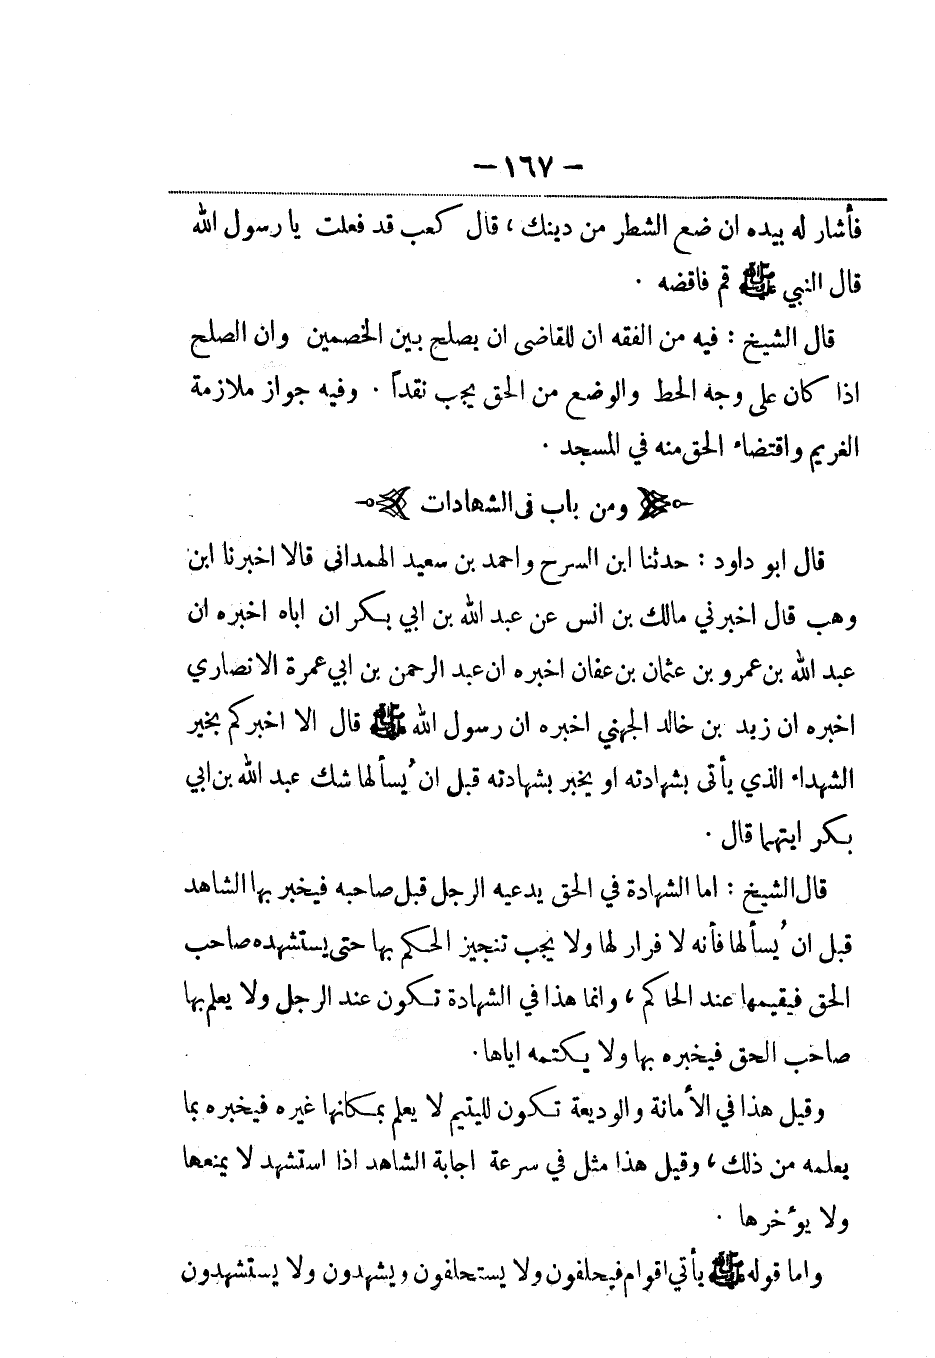 — ١٦٧ —
فأشار له بيده ان ضع الشطر من دينك ، قال كعب قد فعلت يا رسول الله
قال النبي ﷺ قم فاقضه .
قال الشيخ : فيه من الفقه ان للقاضى ان يصلح بين الخصمين وان الصلح
اذا كان على وجه الحط والوضع من الحق يجب نقداً . وفيه جواز ملازمة
الغريم واقتضاء الحق منه في المسجد .
ومن باب فى الشهادات
قال ابو داود : حدثنا ابن السرح واحمد بن سعيد الهمدانى قالا اخبرنا ابن
وهب قال اخبرني مالك بن انس عن عبد الله بن ابي بكر ان اباه اخبره ان
عبد الله بن عمرو بن عثمان بن عفان اخبره ان عبد الرحمن بن ابي عمرة الانصاري
اخبره ان زيد بن خالد الجهني اخبره ان رسول الله ﷺ قال الا اخبركم بخير
الشهداء الذي يأتى بشهادته او يخبر بشهادته قبل ان يُسألها شك عبد الله بن ابي
بكر ايتهما قال .
قال الشيخ : اما الشهادة في الحق يدعيه الرجل قبل صاحبه فيخبر بها الشاهد
قبل ان يُسألها فأنه لا قرار لها ولا يجب تنجيز الحكم بها حتى يستشهده صاحب
الحق فيقيمها عند الحاكم ، وانما هذا في الشهادة تكون عند الرجل ولا يعلم بها
صاحب الحق فيخبره بها ولا يكتمه اياها.
وقيل هذا في الأمانة والوديعة تكون لليتيم لا يعلم بمكانها غيره فيخبره بما
يعلمه من ذلك ، وقيل هذا مثل في سرعة اجابة الشاهد اذا استشهد لا يمنعها
ولا يؤخرها .
واما قوله ﷺ يأتي اقوام فيحلفون ولا يستحلفون ويشهدون ولا يستشهدون